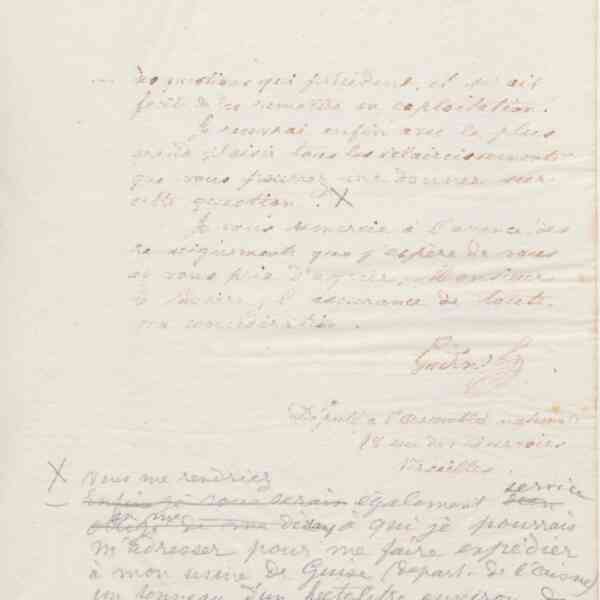 des questions qui précèdent, et qu'on ait
fait de les remettre en exploitation.
Je recevrai enfin avec le plus
grand plaisir tous les éclaircissements
que vous pourrez me donner sur
cette question. X
Je vous remercie à l'avance des
renseignements que j'espère de vous
et vous prie d'agréer, Monsieur
le Maire, l'assurance de toute
ma considération.
Godin
Député à l'Assemblée nationale
18 rue des Réservoirs
Versailles
X vous me rendriez service
Enfin je vous serais également
obligé de me dire à qui je pourrais
m'adresser pour me faire expédier
à mon usine de Guise (départ. de l'Aisne)
un tonneau d'un hectolitre environ de